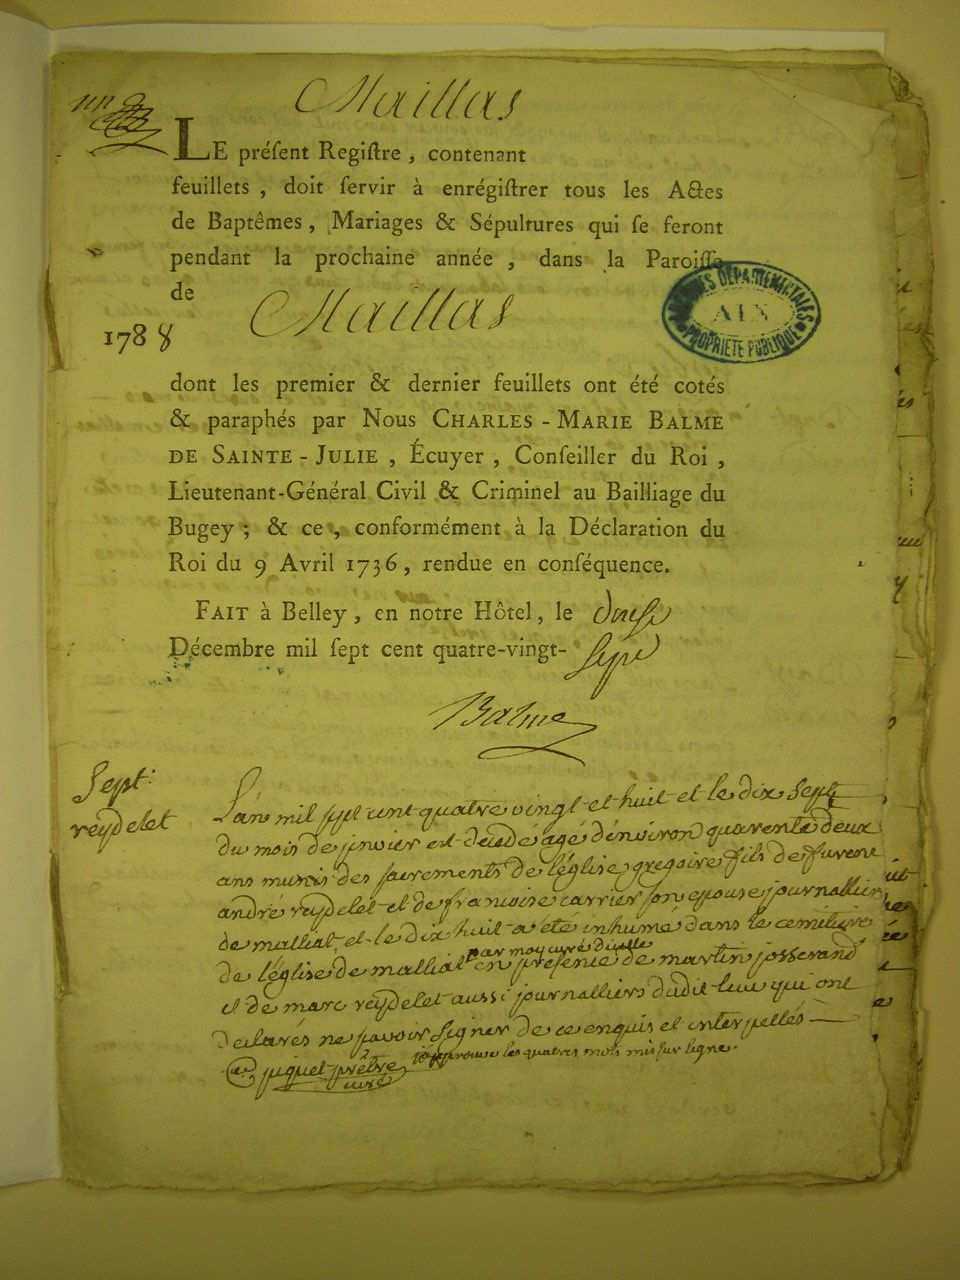 Maillas
LE préſent Regiſtre, contenant
feuillets, doit ſervir à enrégiſtrer tous les Actes
de Baptêmes, Mariages & Sépultures qui ſe feront
pendant la prochaine année, dans la Paroiſſe
de Maillas
ARCHIVES DÉPARTEMENTALES
AIN
PROPRIÉTÉ PUBLIQUE
1788
dont les premier & dernier feuillets ont été cotés
& paraphés par Nous CHARLES-MARIE BALME
DE SAINTE-JULIE, Écuyer, Conſeiller du Roi,
Lieutenant-Général Civil & Criminel au Bailliage du
Bugey; & ce, conformément à la Déclaration du
Roi du 9 Avril 1736, rendue en conſéquence.
FAIT à Belley, en notre Hôtel, le douse
Décembre mil ſept cent quatre-vingt-sept
Balme
Sept:
reydelet
L'an mil sept cent quatre vingt et huit et le dix sept
du mois de janvier est decedé agé d'environ quarente deux
ans munis des sacrements de l'église gregoire fils de
andré reydelet et de francoise carrier son epouse journallier
de malliat, et le dix huit a été inhumé dans le cemétiere
de l'église de malliat par moy curé d'icelle en presence de martin josserand
et de marc reydelet aussi journalliers dudit lieu qui ont
declarés ne savoir signer de ce enquis et interpellés
piquet prêtre j'approuve les quatres mots mis sur ligne.
curé